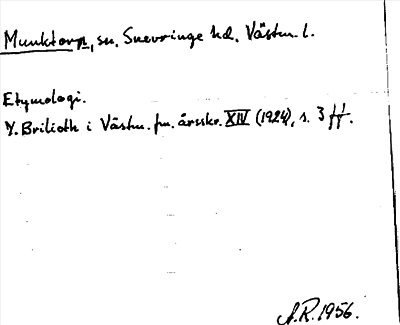 Munktorp, sn. Snevringe hd. Västm. l.
Etymologi.
Y. Brilioth i Västm. fn. årsskr. XIV (1924), s. 3 ff.
A.R. 1956.